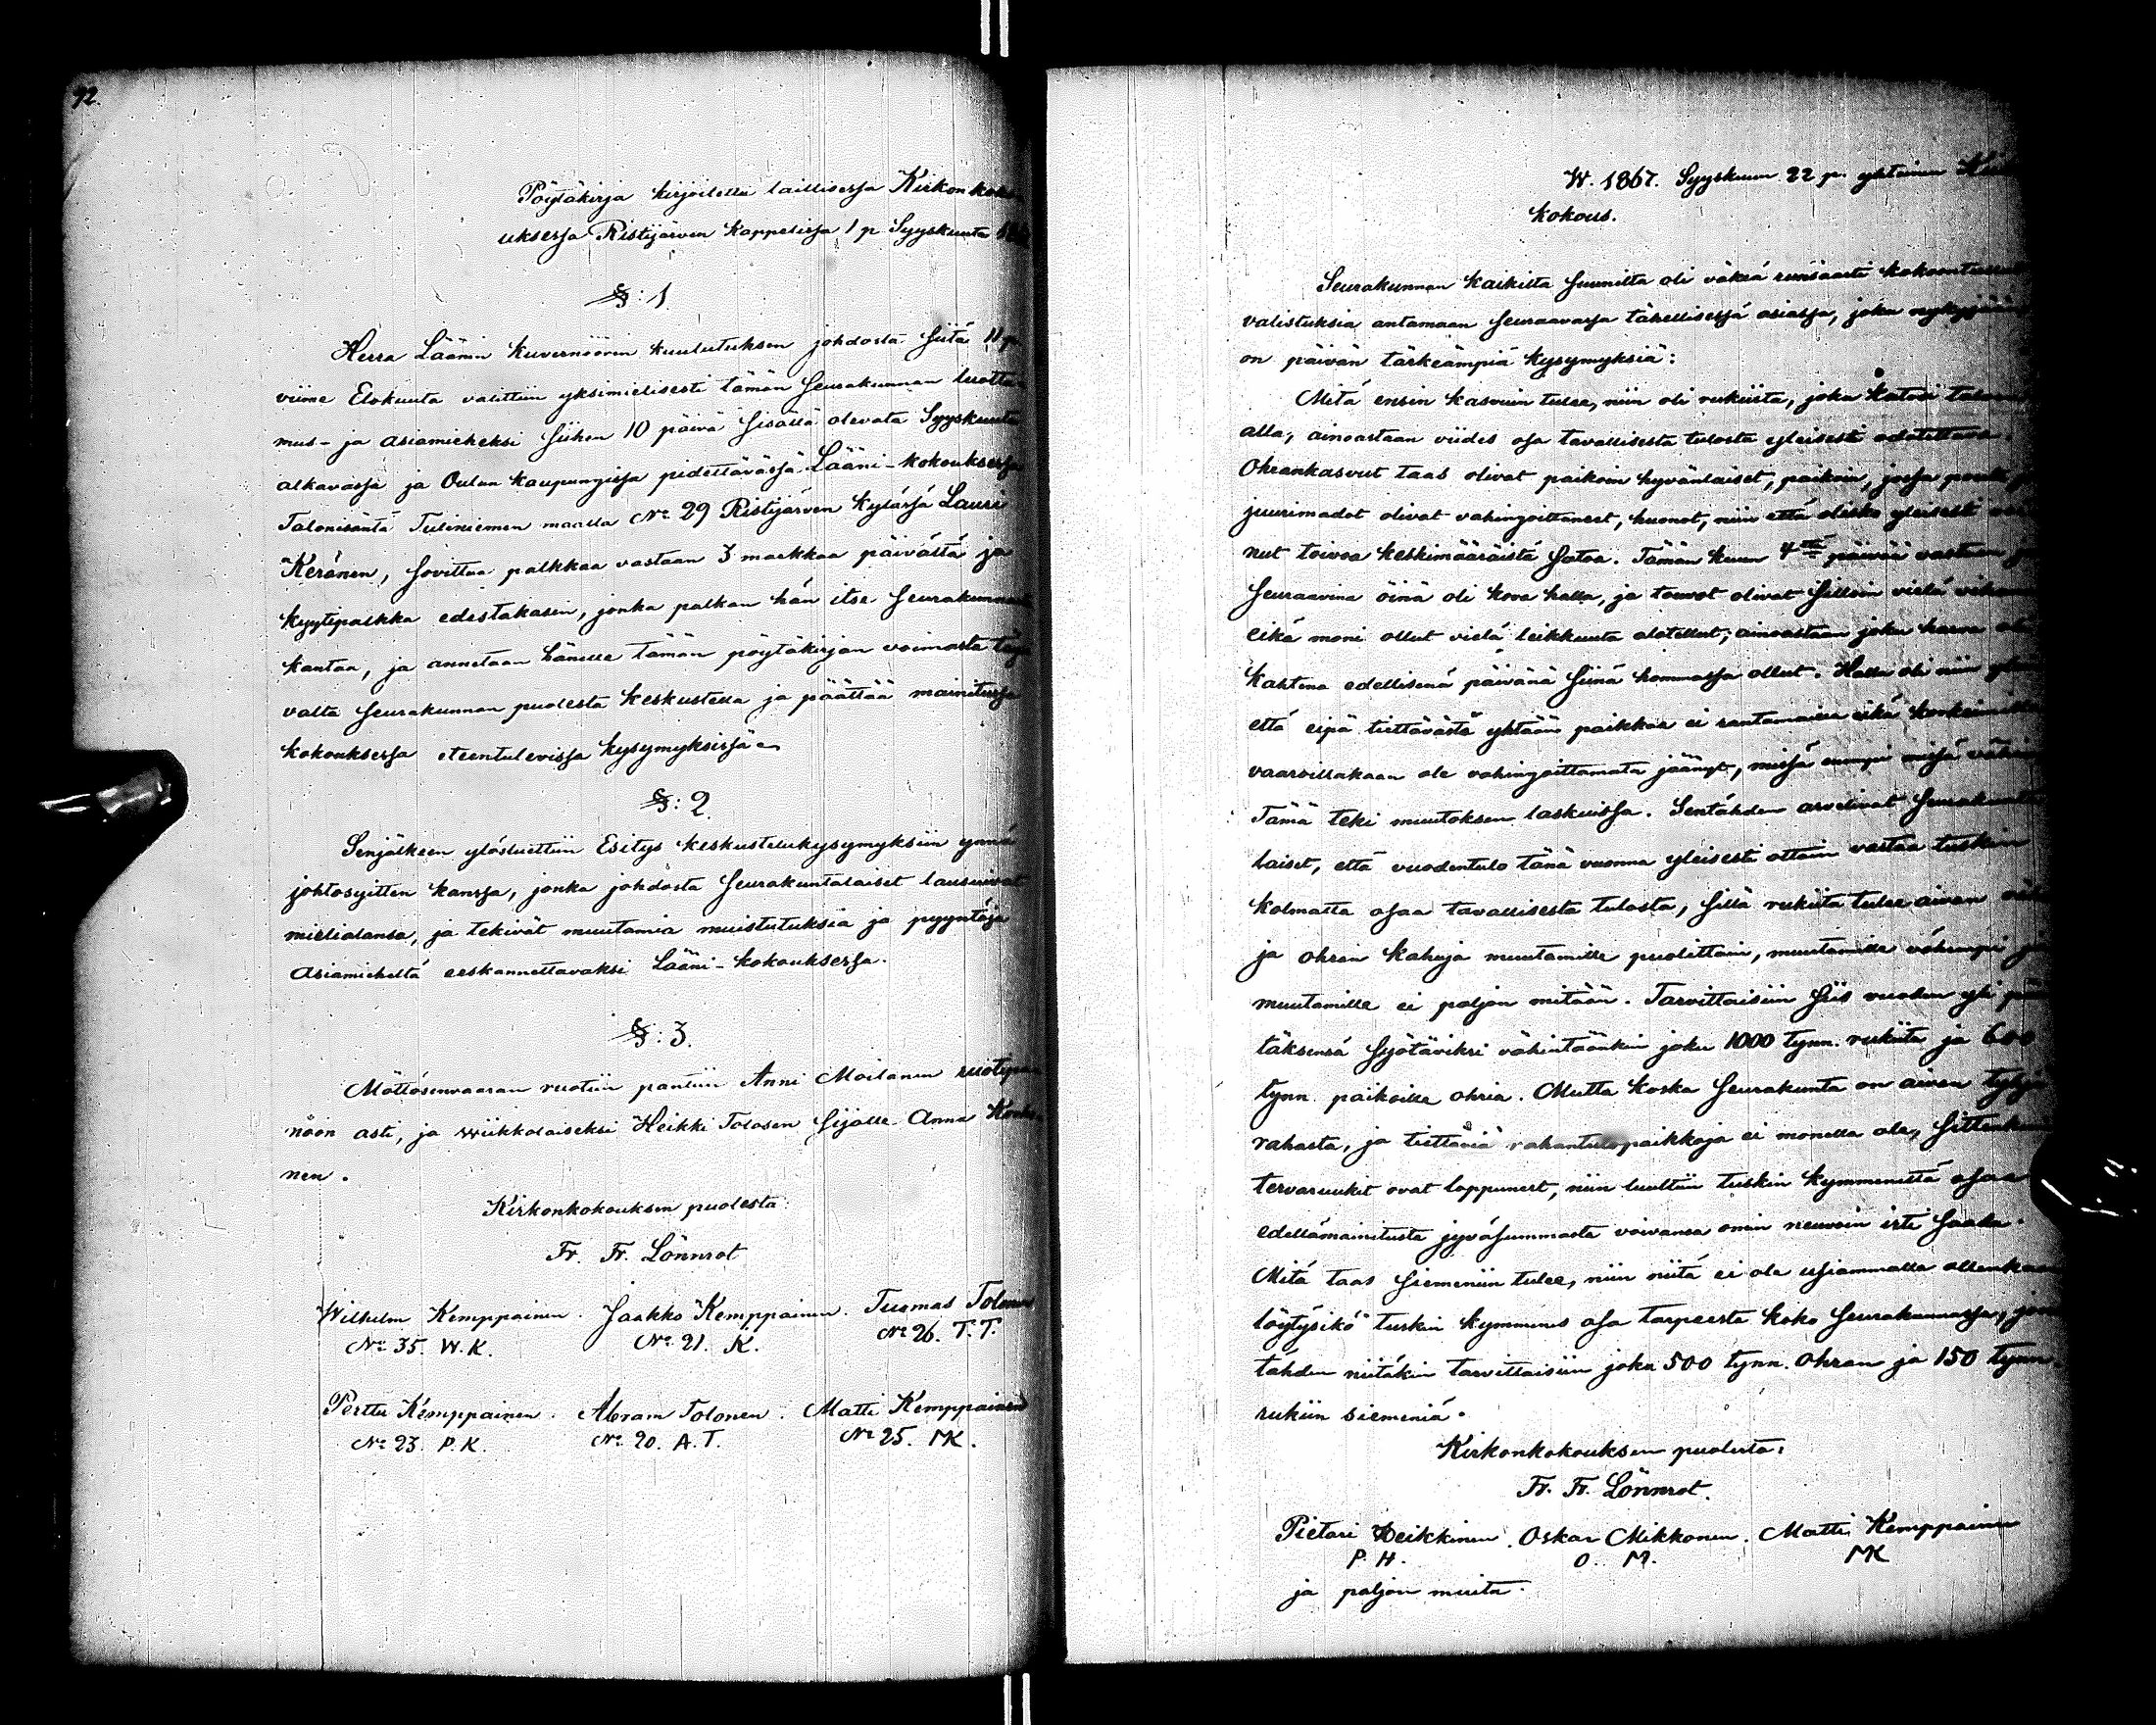 92.
Pöytäkirja kirjoitettu laillisessa Kirkonkoko
uksessa Ristijärven kappelissa 1 p Syyskuuta
§: 1
Herra Läänin kuvernöören kuulutuksen johdosta siitä 11 p.
viime Elokuuta valittiin yksimielisesti tämän seurakunnan luotta
mus- ja asiamieheksi siihen 10 päivä sisällä olevata Syyskuuta
alkavassa ja Oulun kaupungissa pidettävässä Lääni-kokouksessa
Talonisäntä Tuliniemen maalla No 29 Ristijärven kylässä Lauri
Keränen, sovittua palkkaa vastaan 3 markkaa päivältä ja
kyytipalkka edestakasin, jonka palkan hän itse seurakunnasta
kantaa, ja annetaan hänelle tämän pöytäkirjan voimasta täysi
valta seurakunnan puolesta keskustella ja päättää mainitussa
kokouksessa eteentulevissa kysymyksissä.
§: 2.
Senjälkeen ylösluettiin Esitys keskustelukysymyksiin ynnä
johtosyitten kanssa, jonka johdosta seurakuntalaiset lausuivat
mielialansa, ja tekivät muutamia muistutuksia ja pyyntöjä
asiamieheltä eeskannettavaksi Lääni-kokouksessa.
§: 3.
Möttösenvaaran ruotiin pantiin Anni Moilanen ruotipa
nöön asti, ja wiikkolaiseksi Heikki Tolosen sijalle Anna
nen.
Kirkonkokouksen puolesta:
Fr. Fr. Lönnrot
Wilhelm Kemppainen. Jaakko Kemppainen. Tuomas Tolonen
No 35. W.K. No 21. K. No 26. T.T.
Perttu Kemppainen. Abram Tolonen. Matti Kemppainen
No 23. P.K. No 20. A.T. No 25. MK.
W. 1867. Syyskuun 22 p. yhteinen
kokous.
Seurakunnan kaikilta suunnilta oli väkeä runsaasti kokoontunut
valistuksia antamaan seuraavassa tähellisessä asiassa, joka nykyjään
on päivän tärkeämpiä kysymyksiä:
Mitä ensin kasvuin tulee, niin oli rukiista, joka katosi talven
alla, ainoastaan viides osa tavallisesta tulosta yleisesti odotettava.
Ohrankasvut taas olivat paikoin hyvänlaiset, paikoin, jossa pouta ja
juurimadot olivat vahingoittaneet, huonot, niin että olisko yleisesti
nut toivoa keskimääräistä satoa. Tämän kuun 4tä päivää vastaan ja
seuraavina öinä oli kova halla, ja touvot olivat silloin vielä
eikä moni ollut vielä leikkuuta alotellut, ainoastaan joku harva oli
kahtena edellisenä päivänä siinä hommassa ollut. Halla oli niin
että eipä tiettävästä yhtään paikkaa ei rantamailla eikä
vaaroillakaan ole vahingoittamata jäänyt, missä enempi missä vähemmin
Tämä teki muutoksen laskuissa. Sentähden arvelivat seurakunta
laiset, että vuodentulo tänä vuonna yleisesti ottain vastaa tuskin
kolmatta osaa tavallisesta tulosta, sillä rukiita tulee aivan
ja ohran kahuja muutamille puolittain, muutamille vähempi ja
muutamille ei paljon mitään. Tarvittaisiin siis vuoden yli
täksensä syötäviksi vähintäänkin joku 1000 tynn. rukiita ja 600
tynn. paikoilla ohria. Mutta koska seurakunta on aivan tyhjä
rahasta, ja tiettäviä rahantulopaikkoja ei monella ole,
tervaruukit ovat loppuneet, niin luultiin tuskin kymmenettä osaa
edellämainitusta jyväsummasta voivansa omin neuvoin irti saada.
Mitä taas siemeniin tulee, niin niitä ei ole usiammalla ollenkaan
löytysikö tuskin kymmenes osa tarpeesta koko seurakunnassa, jon
tähden niitäkin tarvittaisiin joku 500 tynn. Ohran ja 150 tynn.
rukiin siemeniä.
Kirkonkokouksen puolesta:
Fr. Fr. Lönnrot.
Pietari Heikkinen. Oskar Mikkonen. Matti Kemppainen
P. H. O. M. MK
ja paljon muita.